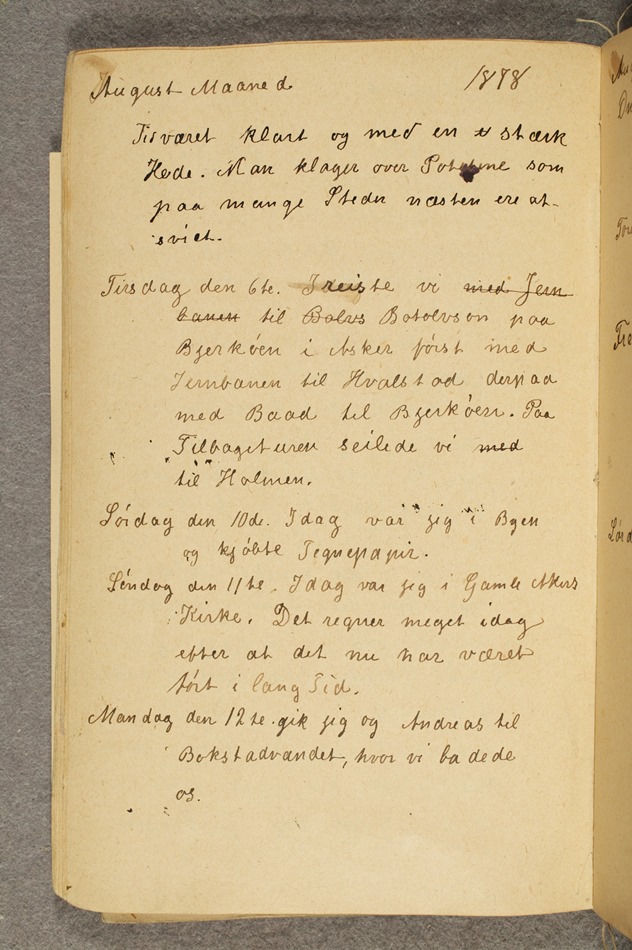 August Maaned 1878
Tidværet klart og med en st stærk
Hede. Man klager over Potetene som
paa mange Steder næsten ere at-
sviet.
Tirsdag den 6te. I reiste vi med Jern
banen til Bolvs Botolvson paa
Bjerköen i Asker först med
Jernbanen til Hvalstad derpaa
med Baad til Bjerköen. Paa
Tilbageturen seilede vi med
til Holmen.
Lördag den 10de. Idag var jeg i Byen
og kjöbte Tegnepapir.
Söndag den 11te. Idag var jeg i Gamle Akers
Kirke. Det regner meget idag
efter at det nu har været
tört i lang Tid.
Mandag den 12te gik jeg og Andreas til
Bokstadvandet, hvor vi badede
os.